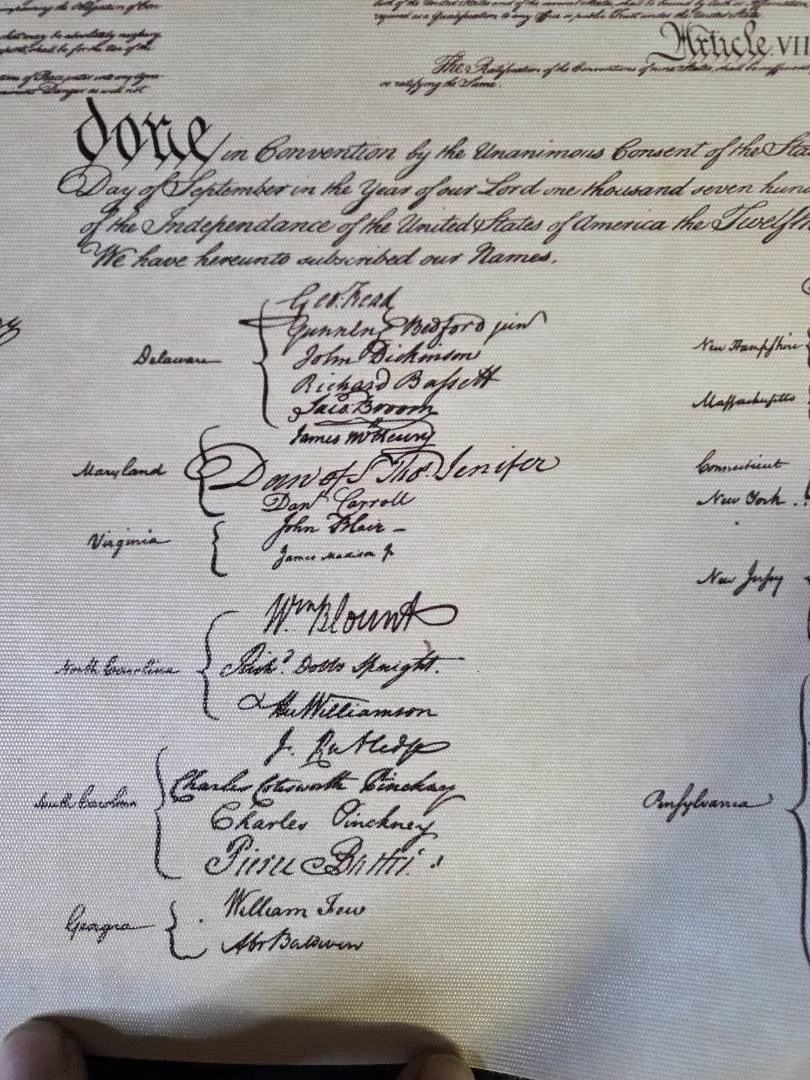 lands of the United States and of the several States, shall be bound by Oath or Affirmation
required as a Qualification to any Office or public Trust under the United States.
what may be absolutely necessary
Article. VII
The Ratification of the Conventions of nine States, shall be
or ratifying the Same.
done in Convention by the Unanimous Consent of the Sta
Day of September in the Year of our Lord one thousand seven hun
of the Independance of the United States of America the Twelfth
We have hereunto subscribed our Names.
Delaware
Geo: Read
Gunning Bedford jun
John Dickinson
Richard Bassett
Jaco: Broom
Maryland
James McHenry
Dan of St Thos. Jenifer
Danl Carroll
Virginia
John Blair –
James Madison Jr
North Carolina
Wm Blount
Richd. Dobbs Spaight.
Hu Williamson
South Carolina
J. Rutledge
Charles Cotesworth Pinckney
Charles Pinckney
Pierce Butler.
Georgia
William Few
Abr Baldwin
New Hampshire
Massachusetts
Connecticut
New York
New Jersey
Pensylvania